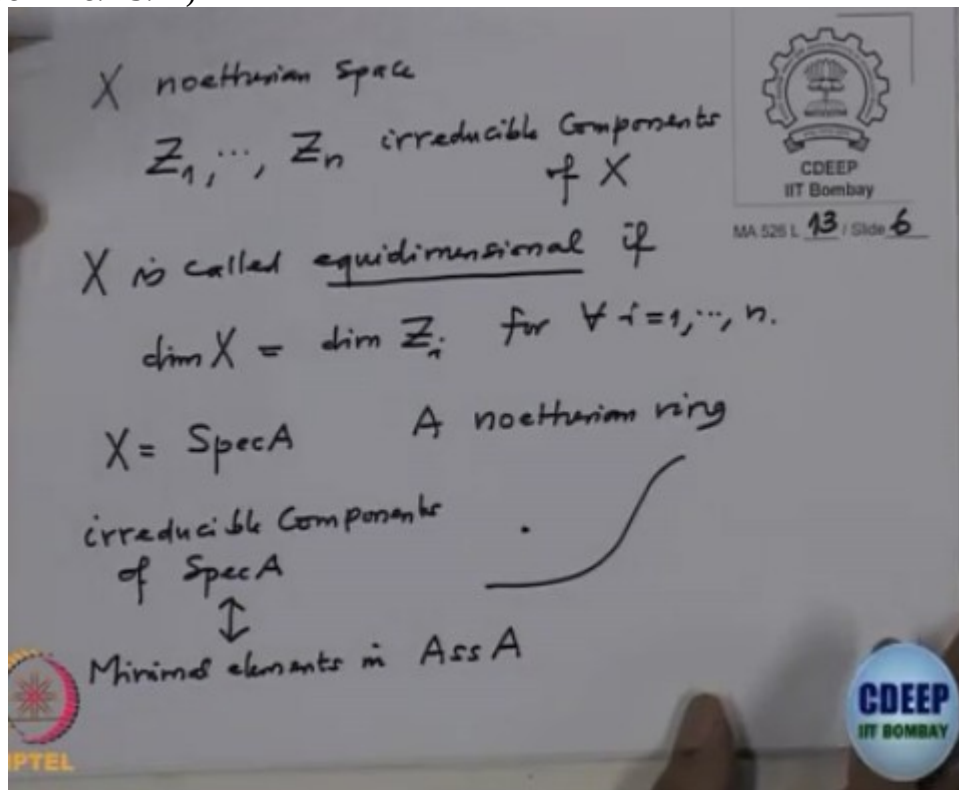 X noetherian space
Z₁, ..., Zₙ irreducible Components
of X
CDEEP
IIT Bombay
MA 526 L 13 / Slide 6
X is called equidimensional if
dim X = dim Zᵢ for ∀ i=1, ..., n.
X = Spec A A noetherian ring
irreducible Components
of Spec A
↕
Minimal elements in Ass A
PTEL
CDEEP
IIT BOMBAY